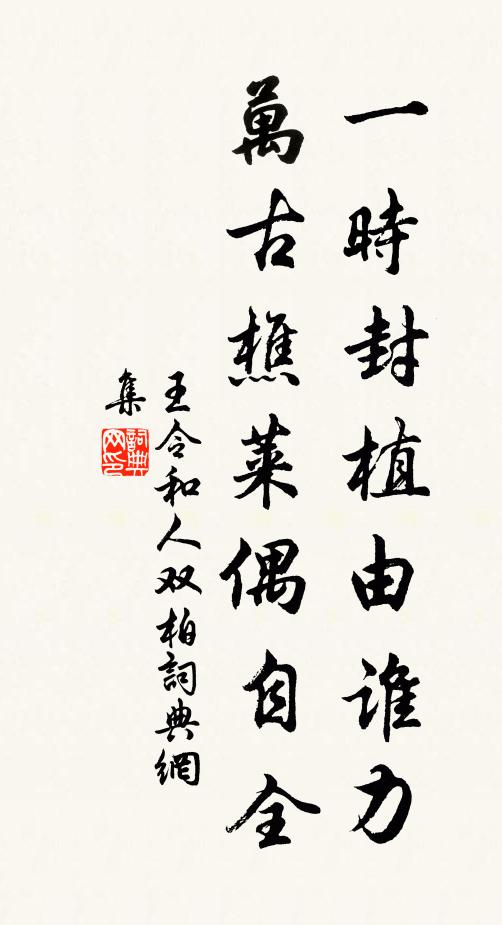 一時封植由誰力
萬古樵萊偶自全
王令和人双柏詞典網
集
詞典网印